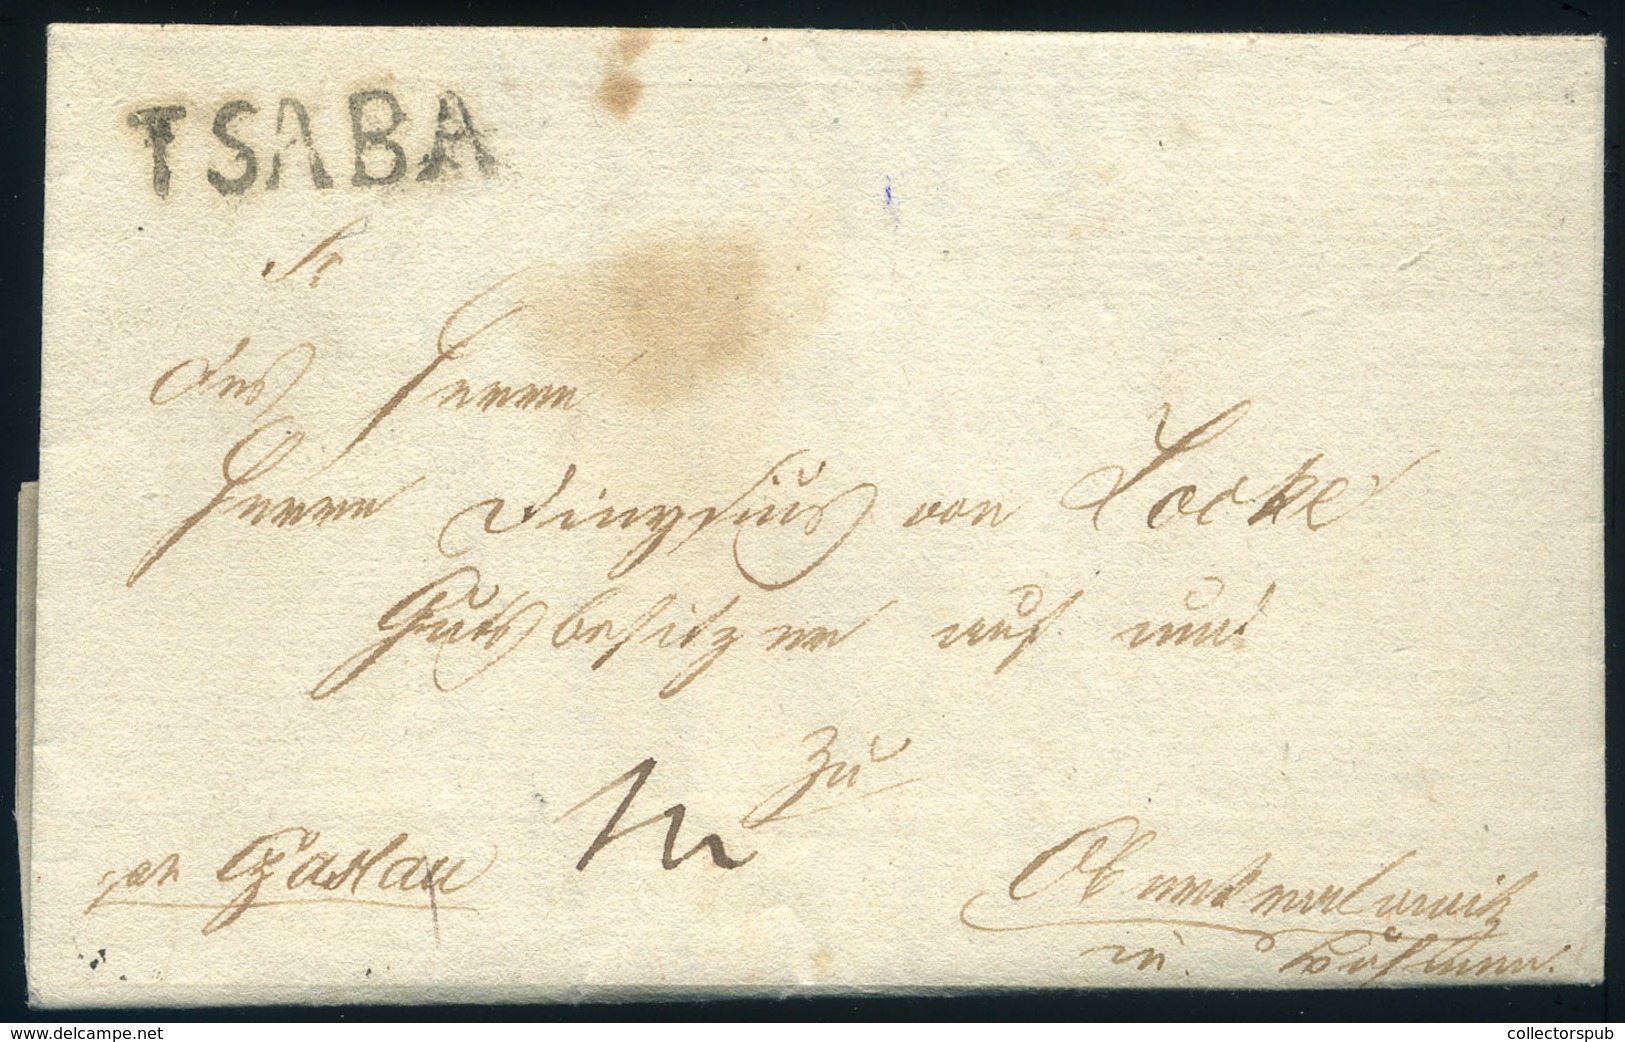 TSABA
Sr
des Herrn
Herrn Dionysius von Locke
Gutsbesitzer auf und
zu
per Czaslau
in Böhmen.
delcampe.net
collectorspub